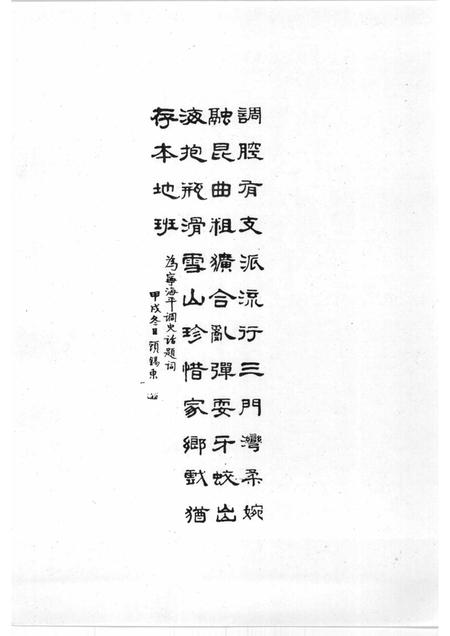 調腔有支派流行三門灣柔婉
融昆曲粗獷合亂彈耍牙蛟出
海抱瓶滑雪山珍惜家鄉戲猶
存本地班
為寧海平調史話題詞
甲戌冬日顧錫東